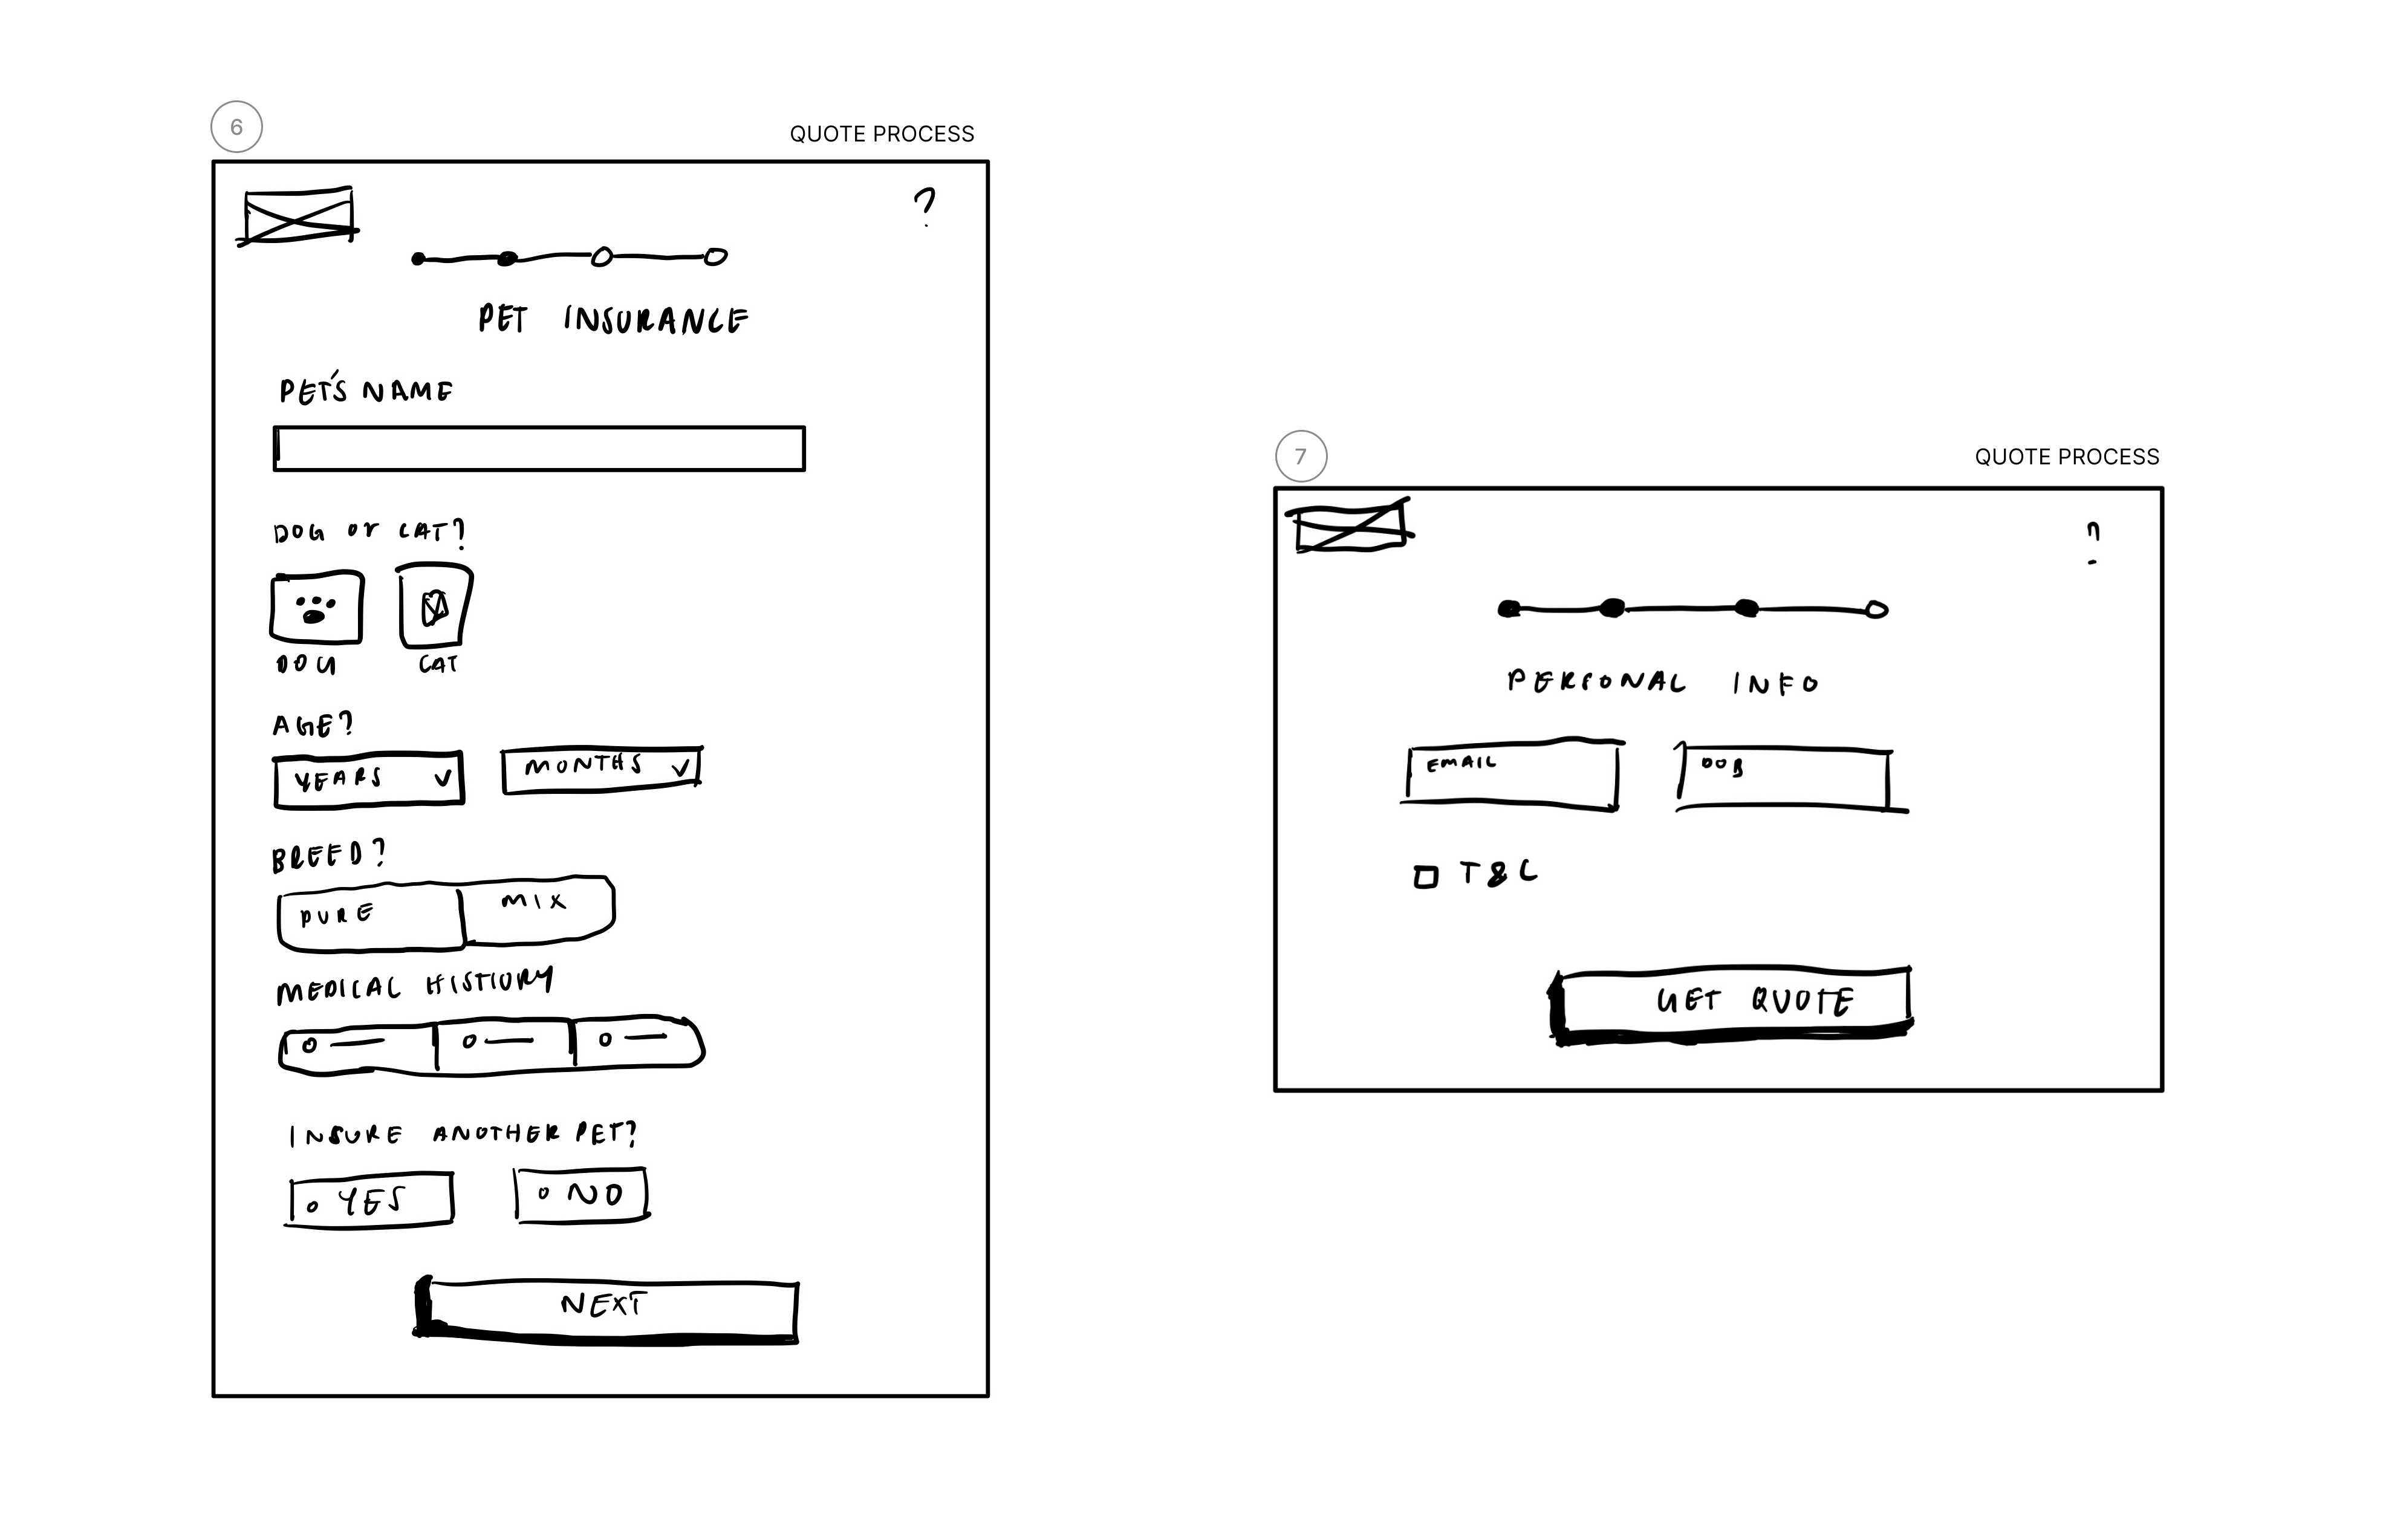 6
QUOTE PROCESS
?
PET INSURANCE
PET'S NAME
DOG or CAT?
DOG CAT
AGE?
YEARS MONTHS
BREED?
PURE MIX
MEDICAL HISTORY
INSURE ANOTHER PET?
YES NO
NEXT
7
QUOTE PROCESS
?
PERSONAL INFO
EMAIL DOB
T&C
GET QUOTE